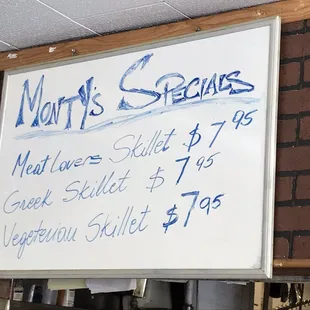 Monty's Specials
Meat Lovers Skillet $7.95
Greek Skillet $7.95
Vegeterian Skillet $7.95